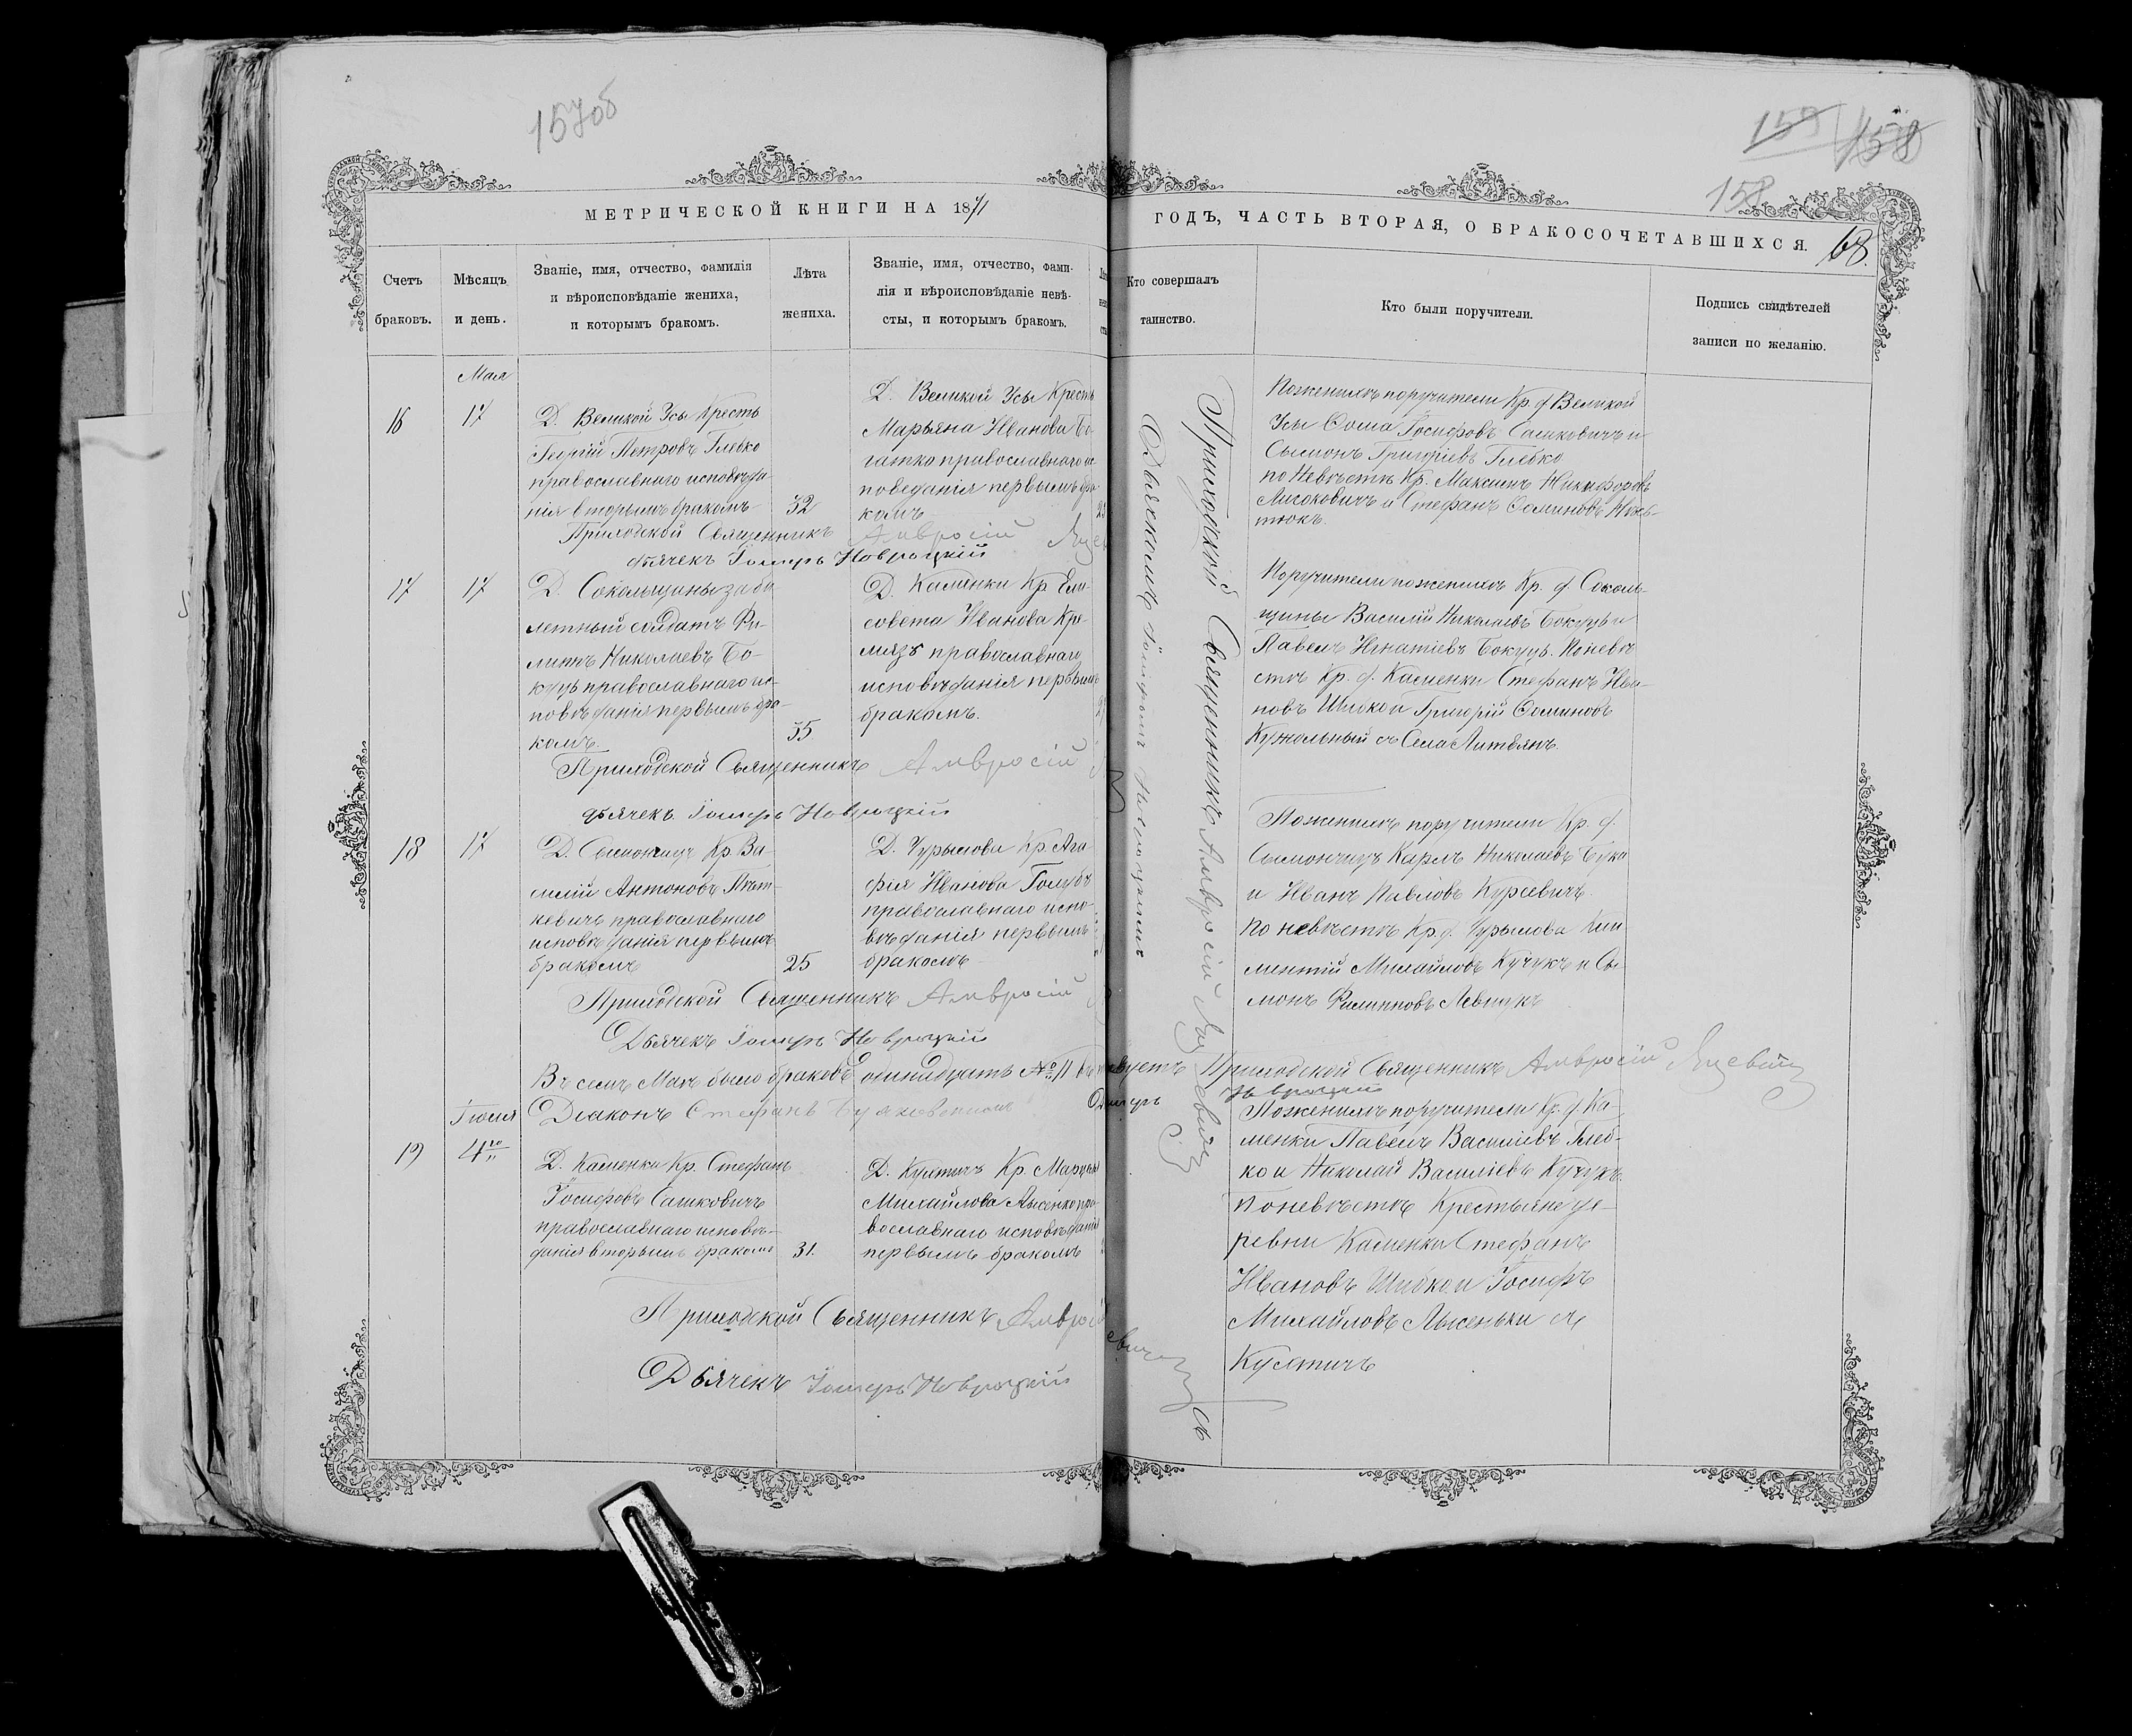 157об
159 158
158
МЕТРИЧЕСКОЙ КНИГИ НА 1871
ГОДЪ, ЧАСТЬ ВТОРАЯ, О БРАКОСОЧЕТАВШИХСЯ. 68.
Счетъ
браковъ.
Мѣсяцъ
и день.
Званіе, имя, отчество, фамилія
и вѣроисповѣданіе жениха,
и которымъ бракомъ.
Лѣта
жениха.
Званіе, имя, отчество, фами-
лія и вѣроисповѣданіе невѣ-
сты, и которымъ бракомъ.
Кто совершалъ
таинство.
Кто были поручители.
Подпись свидѣтелей
записи по желанію.
Мая
16
17
Д. Великой Усы Кресть
Георгій Петровъ Глебко
православнаго исповѣда-
нія вторымъ бракомъ
32
Д. Великой Усы Кресть
Марьяна Иванова Бо-
гатко православнаго ис
поведанія первымъ бра-
комъ
Поженихѣ поручители Кр. д Великой
Усы Ѳома Іосифовъ Сашковичъ и
Сымонъ Григоріевъ Глебко
по Невѣстѣ Кр. Максимъ Никифоровъ
и Стефанъ Ѳоминовъ
Приходской Священникъ Амвросій
дьячекъ Новроцкій
17
17
Д. Сокольщины забо
летный солдатъ Фи-
липъ Николаевъ Бо-
куць православнаго ис-
повѣданія первымъ бра-
комъ.
35
Д. Каменки Кр. Ели-
совета Иванова Кре-
мязъ православнаго
исповѣданія первымъ
бракомъ.
Поручители поженихѣ Кр. д. Соколь-
щины Василій Николаевъ Бокуць и
Павелъ Игнатіевъ Бокуць. Поневѣ
стѣ Кр. д. Каменки Стефанъ Ива-
новъ Шибкои Григорій Ѳоминовъ
Кужольный съ Села Литвянъ.
Приходской Священникъ Амвросій
дьячекъ Новроцкій
18
17
Д. Сымончиць Кр. Ва-
силій Антоновъ Мят-
кевичъ православнаго
исповѣданія первымъ
бракомъ
25
Д. Чурылова Кр. Ага-
фія Иванова Голубъ
православнаго испо-
вѣданія первымъ
бракомъ
Поженихѣ поручители Кр. д.
Сымончицъ Карлъ Николаевъ Бука
и Иванъ Павловъ Курсевичъ.
По невѣстѣ Кр. д. Чурылова Кли
ментій Михайловъ Кучукъ и Сы-
монъ Филипповъ Левшукъ
Приходской Священникъ Амвросій
Дьячекъ Новроцкій
Приходской Священникъ Амвросій
Въ семъ Маѣ было браковъ одинадцать № 11
Приходской Священникъ Амвросій Яцевичъ
Діаконъ Стефанъ
Новроцкій
Іюля
19
4го
Д. Каменки Кр. Стефанъ
Іосифовъ Сашковичъ
православнаго исповѣ-
данія вторымъ бракомъ
31.
Д. Кусятичъ Кр. Марцеля
Михайлова Лысенко пра-
вославнаго исповѣданія
первымъ бракомъ
Поженихѣ поручители Кр. д. Ка-
менки Павелъ Василіевъ Глеб-
ко и Николай Василіевъ Кучукъ.
Поневѣстѣ Крестьяне де-
ревни Каменки Стефанъ
Ивановъ Шибкои Іосифъ
Михайловъ Лысенькисъ
Кусятичъ
Приходской Священникъ Амвросій
Дьячекъ Новроцкій